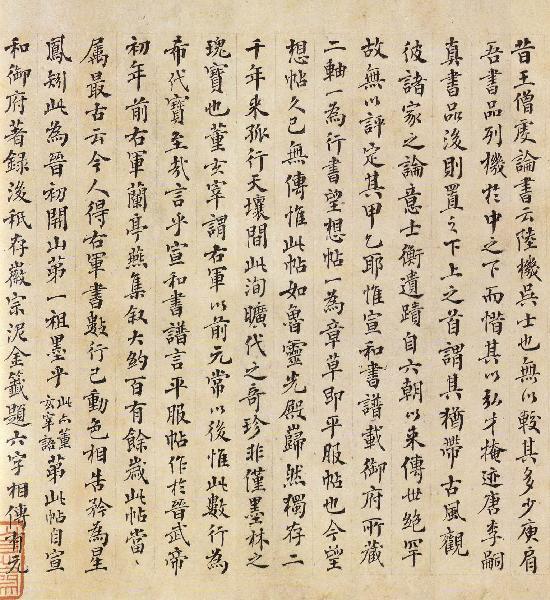 昔王僧虔論書云陸機吳士也無以較其多少庾肩
吾書品列機於中之下而惜其以弘才掩迹唐李嗣
真書品後則置之下上之首謂其猶帶古風觀
彼諸家之論意士衡遺蹟自六朝以來傳世絕罕
故無以評定其甲乙耶惟宣和書譜載御府所藏
二軸一為行書望想帖一為章草即平服帖也今望
想帖久已無傳惟此帖如魯靈光殿巋然獨存二
千年來孤行天壤間此洵曠代之奇珍非僅墨林之
瑰寶也董玄宰謂右軍以前元常以後惟此數行為
希代寶至哉言乎宣和書譜言平服帖作於晉武帝
初年前右軍蘭亭燕集敘大約百有餘歲此帖當〻
屬最古云今人得右軍書數行已動色相告矜為星
鳳矧此為晉初開山第一祖墨乎此亦董玄宰語第此帖自宣
和御府著錄後祇存徽宗泥金籤題六字相傳有元